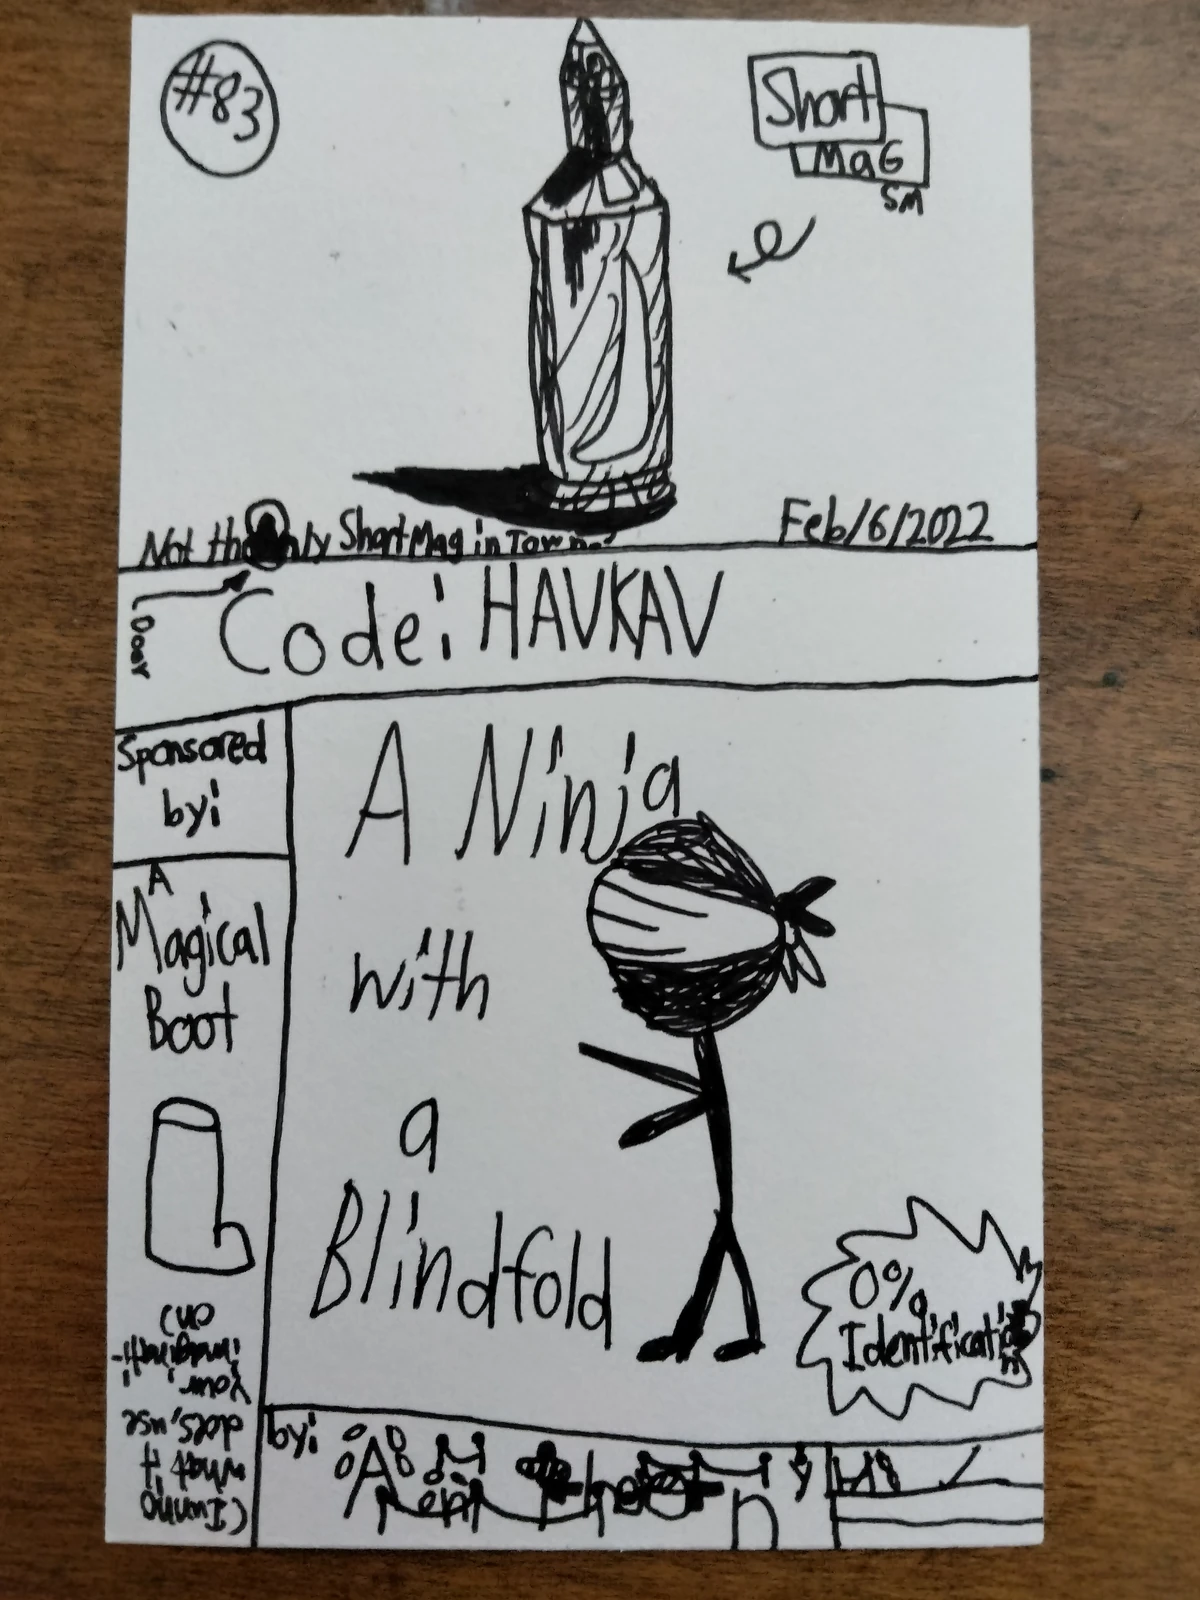 #83
Short
MaG
SM
Not the only Short Mag in Town.
Feb/6/2022
Door
Code: HAVKAV
Sponsored
by:
A
Magical
Boot
(Iunno
what it
does, use
your
imaginati-
on)
A Ninja
with
a
Blindfold
0%
Identification
by: